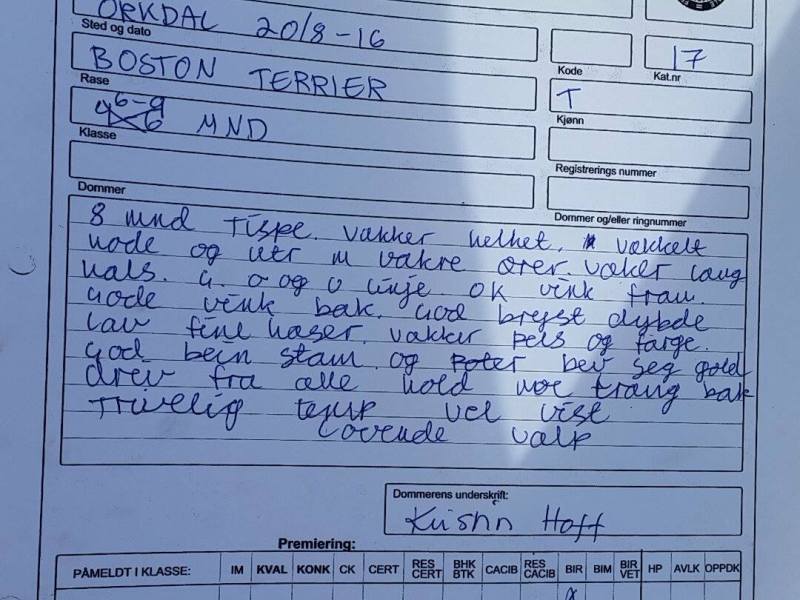 ORKDAL 20/8-16
Sted og dato
BOSTON TERRIER
Rase
Kode
17
Kat.nr
6-9 MND
Klasse
T
Kjønn
Registrerings nummer
Dommer
Dommer og/eller ringnummer
8 mnd Tispe. vakker helhet. vakkelt
hode og utr m vakre ører. vaker lang
hals. G. o og u linje OK vink fran.
Gode vink bak. God bryst dybde
lav fine haser. vakker pels og farge.
God bein stam og poter bev seg gold
drev fra alle hold noe trang bak
Trivelig temp vel vist
Lovende valp
Dommerens underskrift:
Kristin Hoff
Premiering:
PÅMELDT I KLASSE: IM KVAL KONK CK CERT RES CERT BHK BTK CACIB RES CACIB BIR BIM BIR VET HP AVLK OPPDK
x